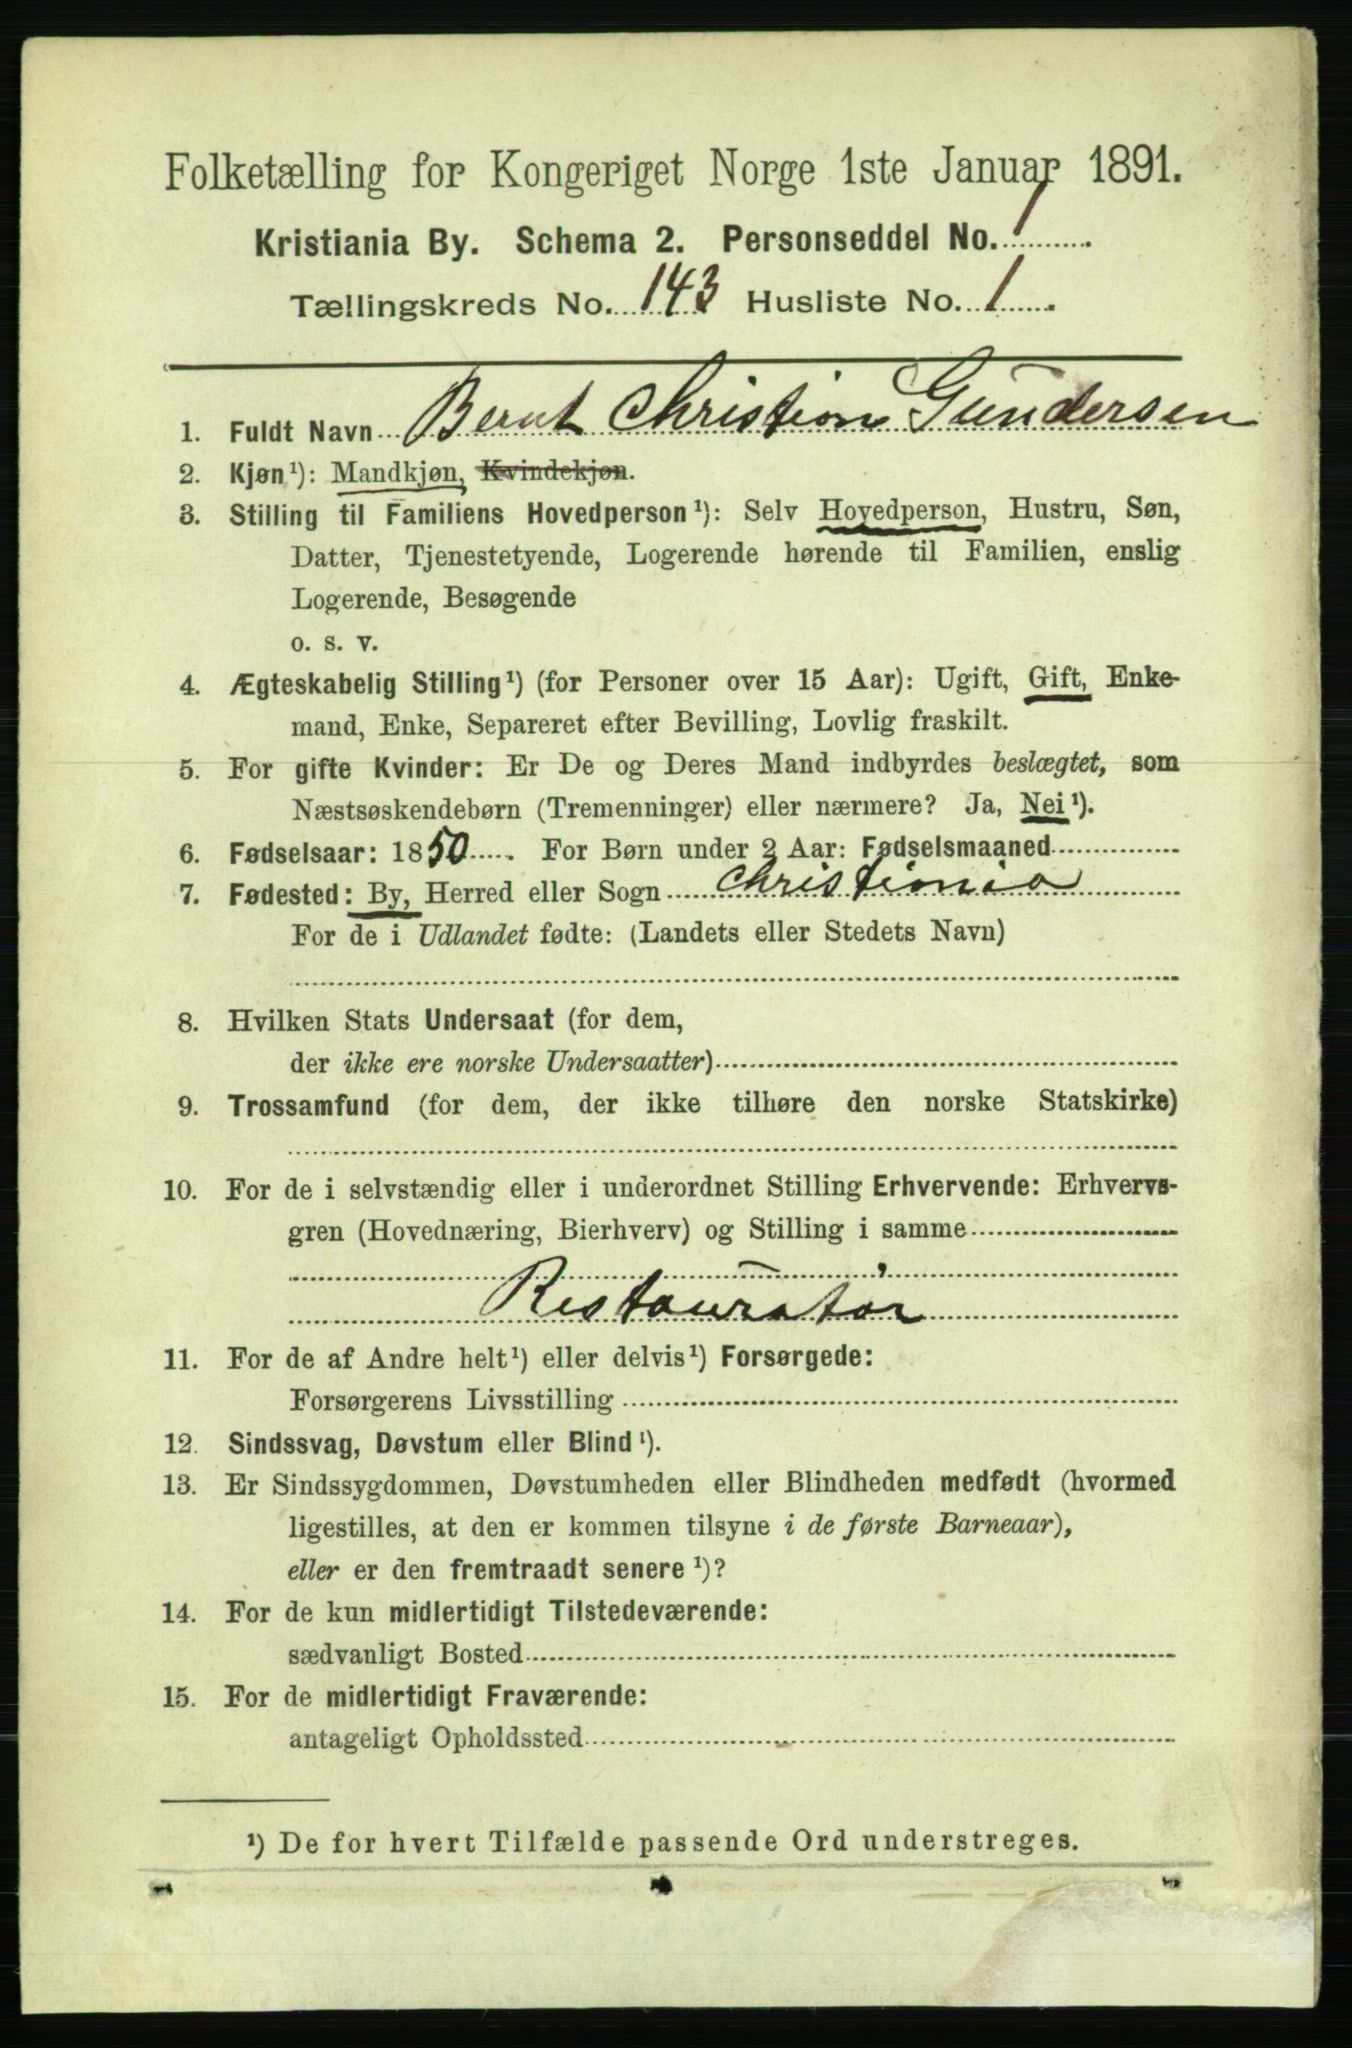 Folketælling for Kongeriget Norge 1ste Januar 1891.
Kristiania By. Schema 2. Personseddel No. 1
Tællingskreds No. 143 Husliste No. 1
1. Fuldt Navn Bernt Christian Gundersen
2. Kjøn¹): Mandkjøn, Kvindekjøn.
3. Stilling til Familiens Hovedperson¹): Selv Hovedperson, Hustru, Søn,
Datter, Tjenestetyende, Logerende hørende til Familien, enslig
Logerende, Besøgende
o. s. v.
4. Ægteskabelig Stilling¹) (for Personer over 15 Aar): Ugift, Gift, Enke-
mand, Enke, Separeret efter Bevilling, Lovlig fraskilt.
5. For gifte Kvinder: Er De og Deres Mand indbyrdes beslægtet, som
Næstsøskendebørn (Tremenninger) eller nærmere? Ja, Nei¹).
6. Fødselsaar: 1850. For Børn under 2 Aar: Fødselsmaaned
7. Fødested: By, Herred eller Sogn Christiania
For de i Udlandet fødte: (Landets eller Stedets Navn)
8. Hvilken Stats Undersaat (for dem,
der ikke ere norske Undersaatter)
9. Trossamfund (for dem, der ikke tilhøre den norske Statskirke)
10. For de i selvstændig eller i underordnet Stilling Erhvervende: Erhvervs-
gren (Hovednæring, Bierhverv) og Stilling i samme
Restauratør
11. For de af Andre helt¹) eller delvis¹) Forsørgede:
Forsørgerens Livsstilling
12. Sindssvag, Døvstum eller Blind¹).
13. Er Sindssygdommen, Døvstumheden eller Blindheden medfødt (hvormed
ligestilles, at den er kommen tilsyne i de første Barneaar),
eller er den fremtraadt senere¹)?
14. For de kun midlertidigt Tilstedeværende:
sædvanligt Bosted
15. For de midlertidigt Fraværende:
antageligt Opholdssted
¹) De for hvert Tilfælde passende Ord understreges.